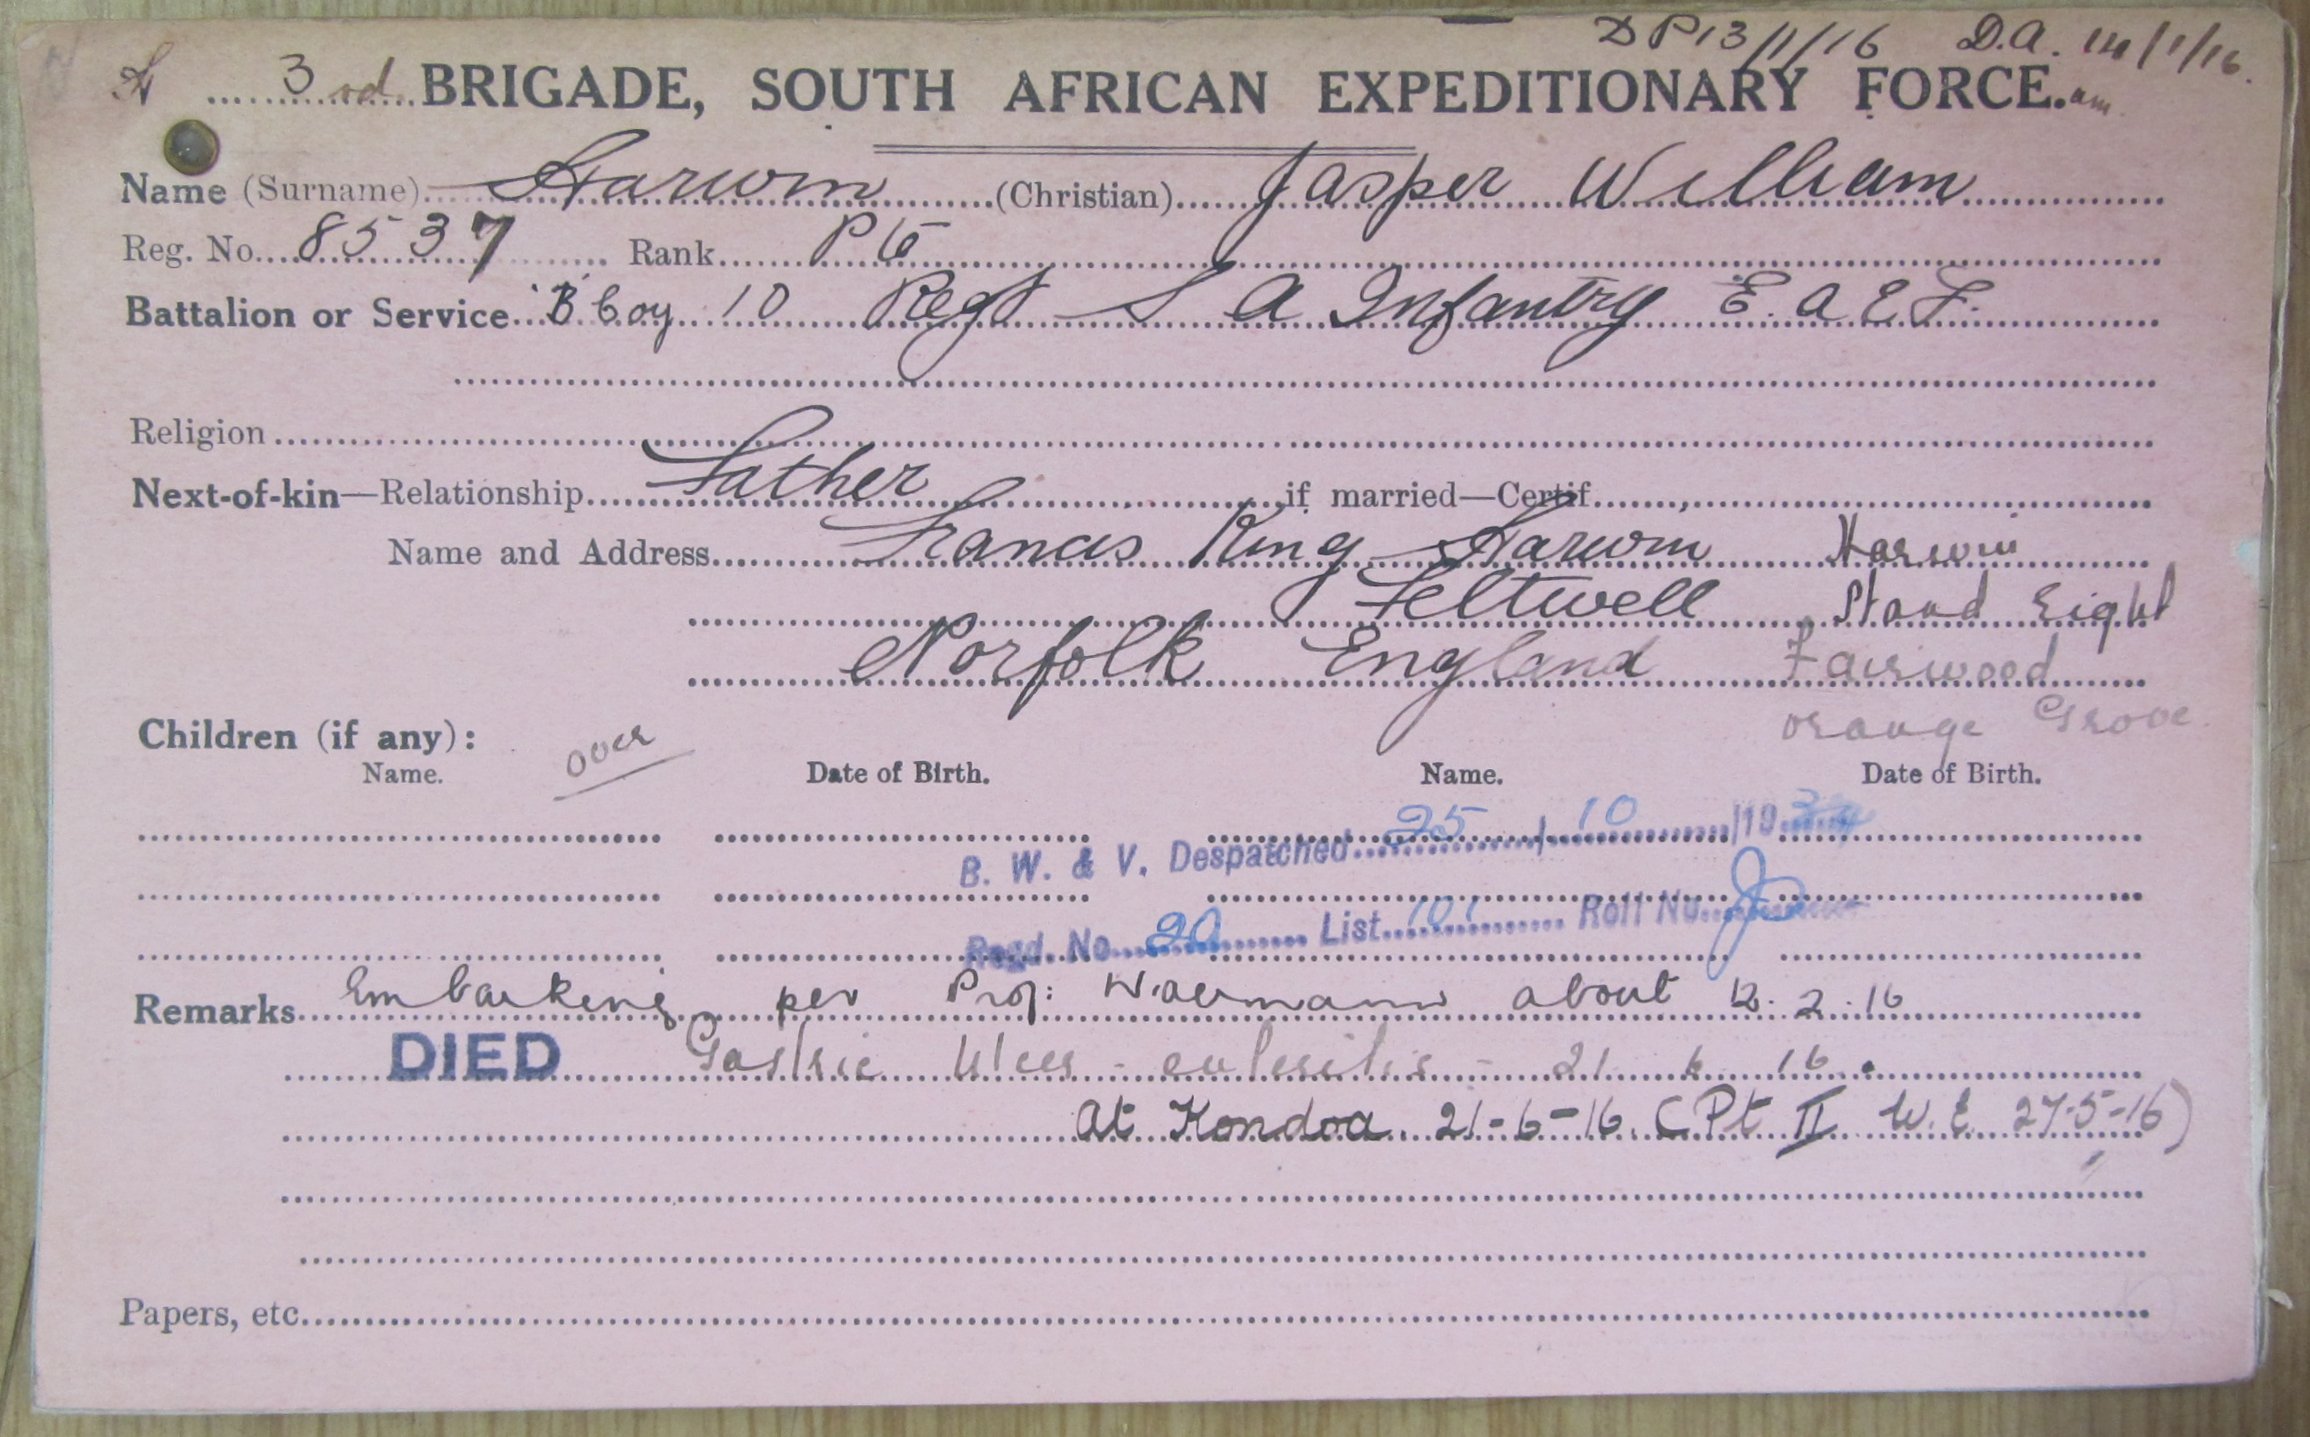 DP 13/1/16 D.A. 14/1/16.
3rd BRIGADE, SOUTH AFRICAN EXPEDITIONARY FORCE.
Name (Surname) Harwin (Christian) Jasper William
Reg. No. 8537 Rank Pte
Battalion or Service "B Coy 10 Regt S A Infantry E. A E F.
Religion
Next-of-kin—Relationship Father if married—Certif.
Name and Address Francis King Harwin Harwin
Feltwell Stand Eight
Norfolk England Fairwood
Orange Grove.
Children (if any): over
Name. Date of Birth. Name. Date of Birth.
B. W. & V. Despatched 25/10/19
Regd. No. 20 List 101 Roll No.
Remarks Embarking per Prof: Woermann about 12.2.16
DIED Gastric Ulcer - enteritis - 21 6 16.
At Kondoa 21-6-16. (Pt II W.E 27-5-16)
Papers, etc.